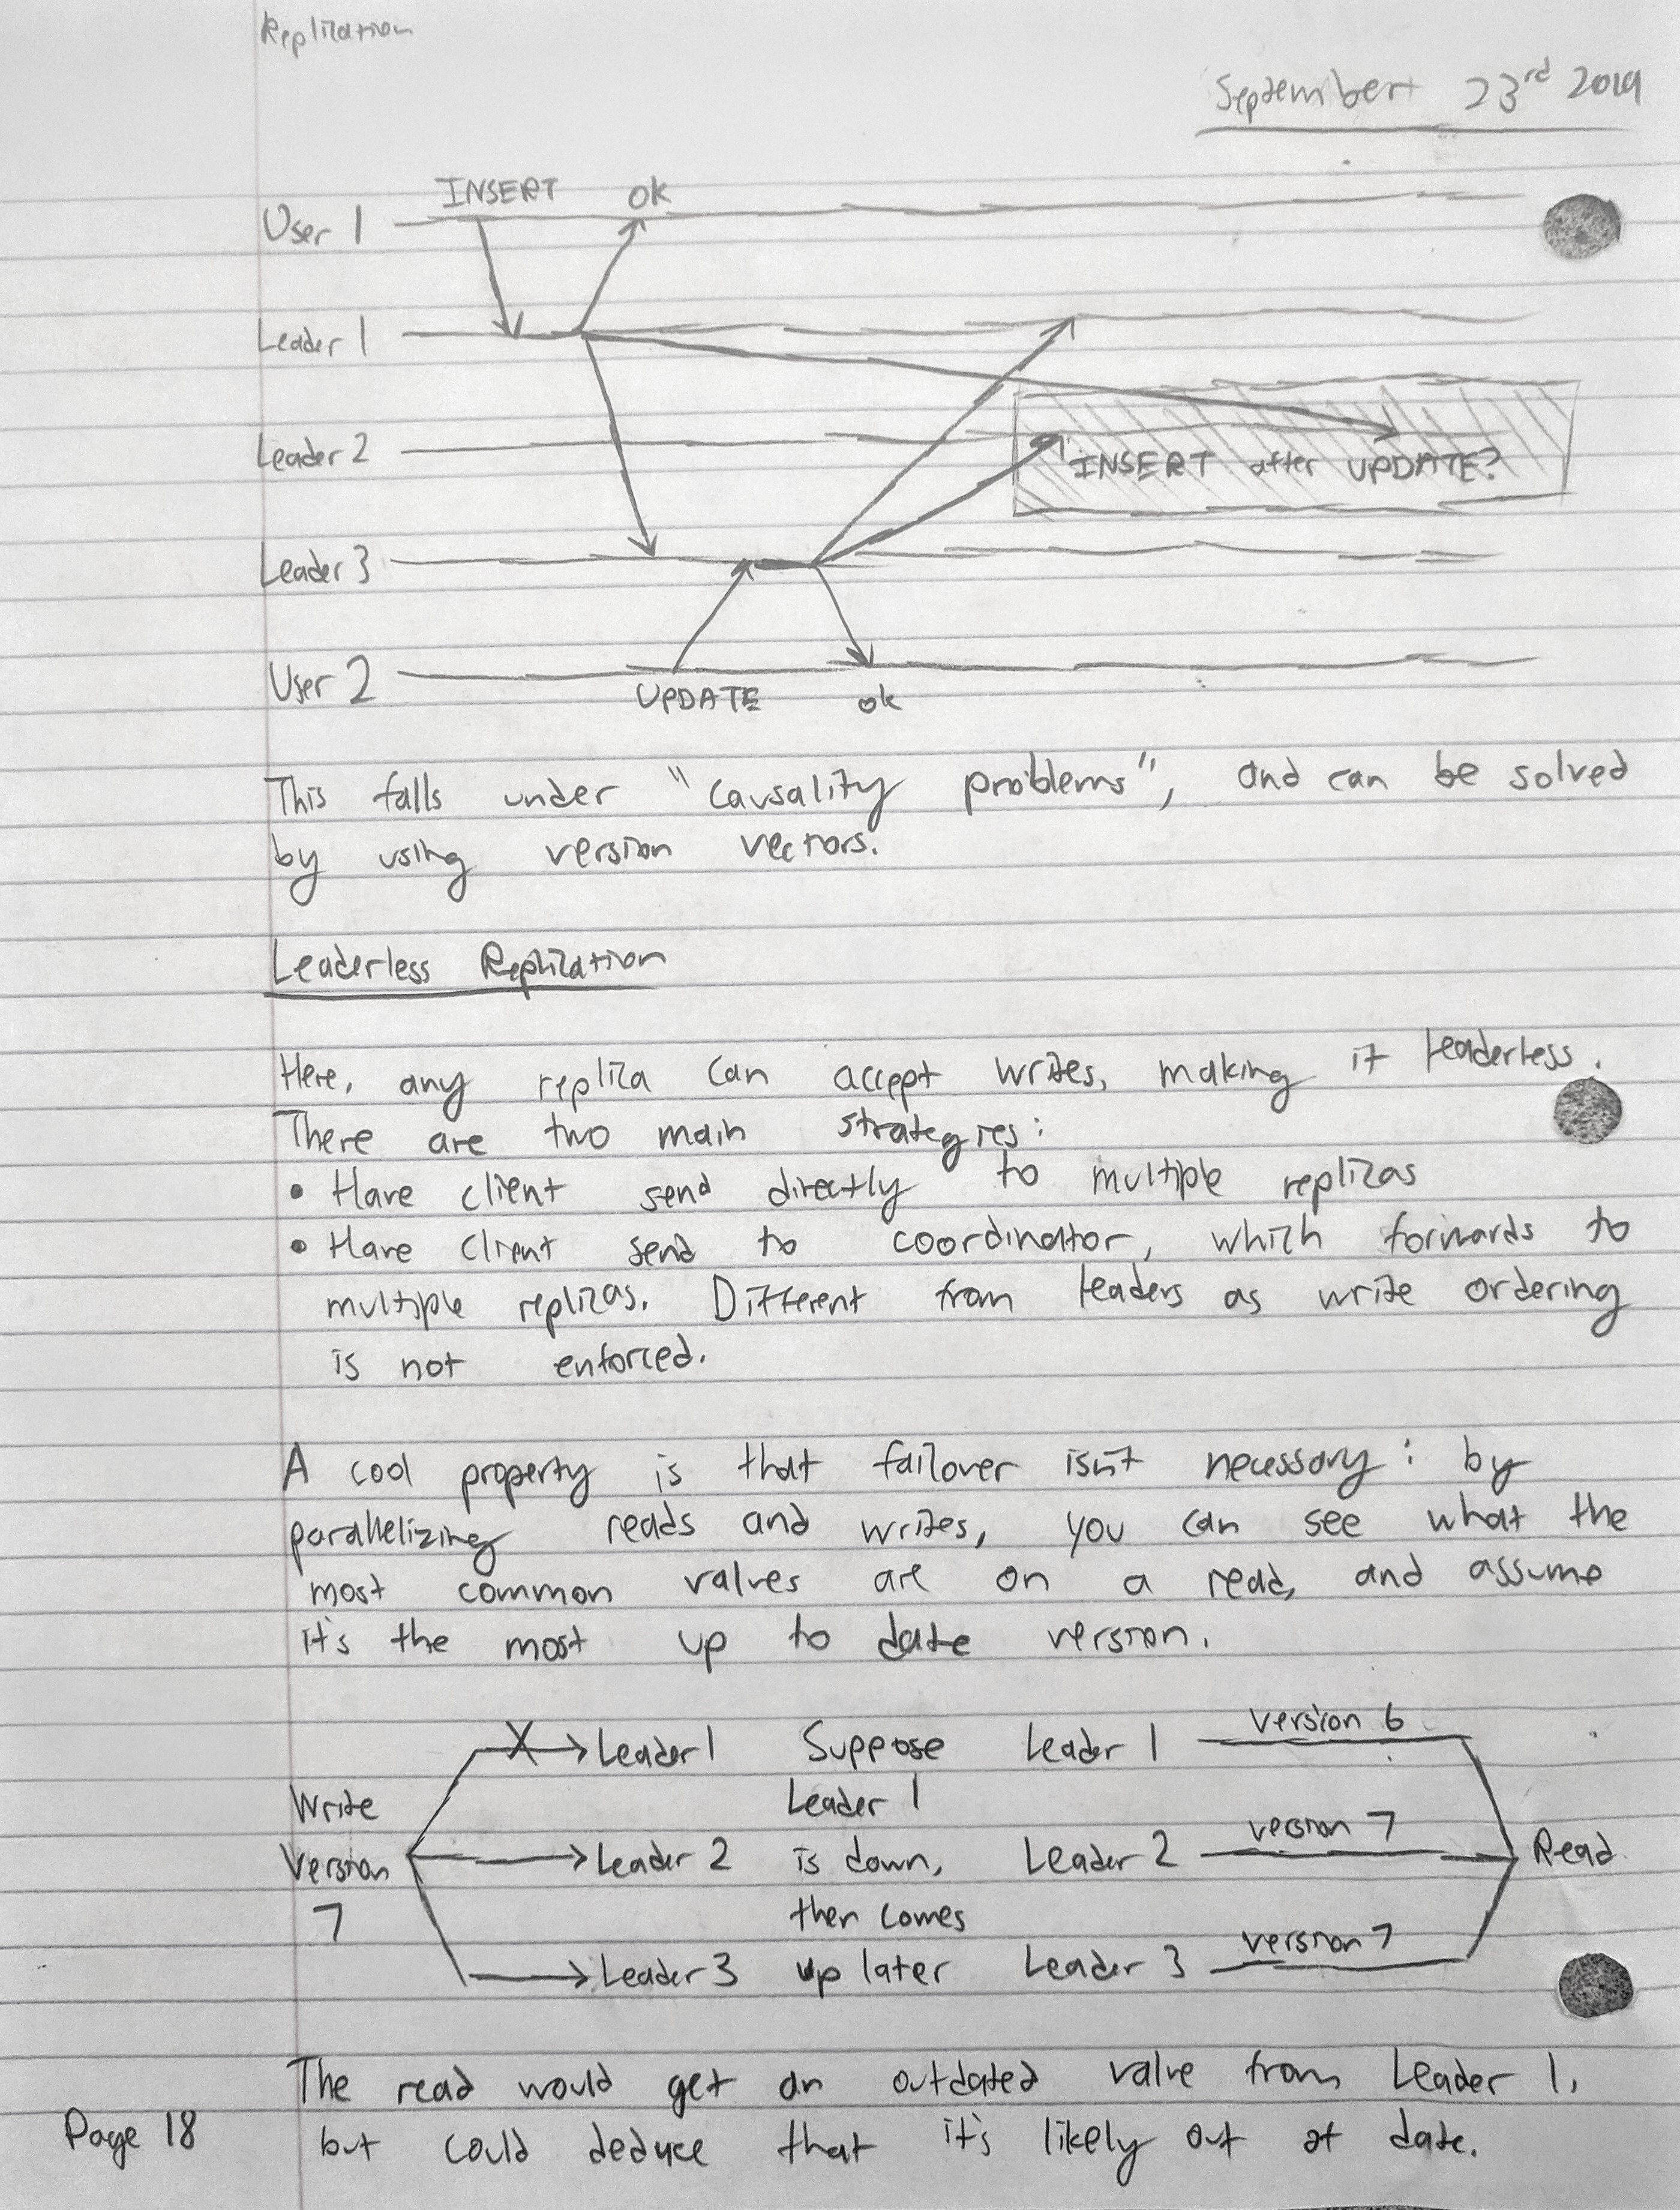 Replication
September 23rd 2019
INSERT ok
User 1
Leader 1
Leader 2
INSERT after UPDATE?
Leader 3
User 2
UPDATE ok
This falls under "causality problems", and can be solved
by using version vectors.
Leaderless Replication
Here, any replica can accept writes, making it leaderless.
There are two main strategies:
• Have client send directly to multiple replicas
• Have client send to coordinator, which forwards to
multiple replicas. Different from leaders as write ordering
is not enforced.
A cool property is that failover isn't necessary: by
parallelizing reads and writes, you can see what the
most common values are on a read, and assume
it's the most up to date version.
Write
Version
7
X
Leader 1
Leader 2
Leader 3
Suppose
Leader 1
is down,
then comes
up later
Leader 1 version 6
Leader 2 version 7
Leader 3 version 7
Read
The read would get an outdated value from Leader 1,
but could deduce that it's likely out of date.
Page 18